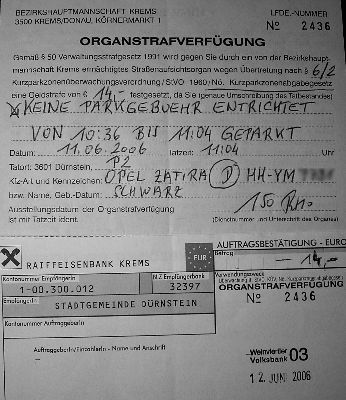 BEZIRKSHAUPTMANNSCHAFT KREMS
3500 KREMS/DONAU, KÖRNERMARKT 1
LFDE.-NUMMER
No 2436
ORGANSTRAFVERFÜGUNG
Gemäß § 50 Verwaltungsstrafgesetz 1991 wird gegen Sie durch ein von der Bezirkshaupt-
mannschaft Krems ermächtigtes Straßenaufsichtsorgan wegen Übertretung nach § 6/2
Kurzparkzonenüberwachungsverordnung/StVO 1960/Nö. Kurzparkzonenabgabegesetz
eine Geldstrafe von € 14,- festgesetzt, da Sie (genaue Umschreibung des Tatbestandes)
KEINE PARKGEBUEHR ENTRICHTET
VON 10:36 BIS 11:04 GEPARKT
Datum: 11.06.2006 Tatzeit: 11:04 Uhr
Tatort: 3601 Dürnstein, P2
Kfz-Art und Kennzeichen: OPEL ZAFIRA (D) HH-YM
bzw. Name, Geb.-Datum: SCHWARZ
Ausstellungsdatum der Organstrafverfügung
ist mit Tatzeit ident.
(Dienstnummer und Unterschrift des Organes)
AUFTRAGSBESTÄTIGUNG - EURO
RAIFFEISENBANK KREMS
EUR
Betrag
14,-
Kontonummer EmpfängerIn
BLZ Empfängerbank
1-00.300.012
32397
Verwendungszweck
ORGANSTRAFVERFÜGUNG
No 2436
EmpfängerIn
STADTGEMEINDE DÜRNSTEIN
Kontonummer AuftraggeberIn
AuftraggeberIn/EinzahlerIn - Name und Anschrift
Weinviertler
Volksbank 03
12. JUNI 2006